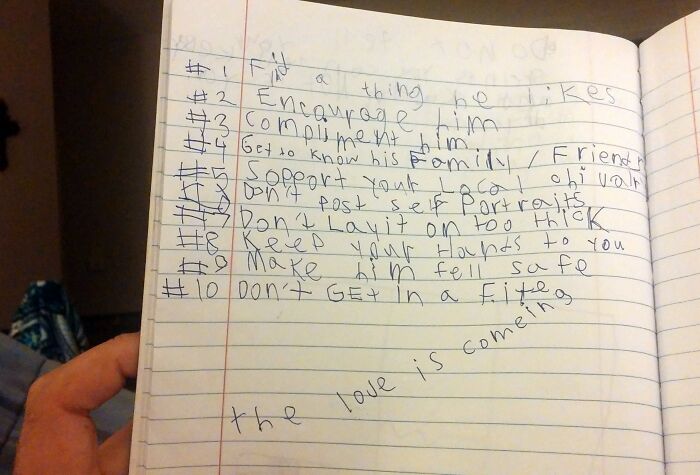 #1 Find a thing he likes
#2 Encourage him
#3 compliment him
#4 Get to know his Family / Friends
#5 Support your Local chivalr
Don't post self Portraits
Don't Layit on too thick
#8 Keep your Hands to you
#9 Make him fell safe
#10 DON'T GEt in a Fite
the love is comeing